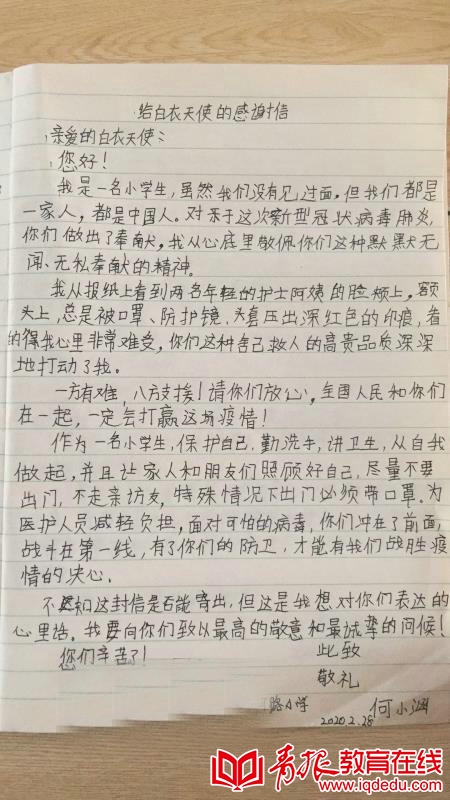 给白衣天使的感谢信
亲爱的白衣天使:
您好!
我是一名小学生,虽然我们没有见过面,但我们都是
一家人,都是中国人。对于这次新型冠状病毒肺炎,
你们做出了奉献,我从心底里敬佩你们这种默默无
闻、无私奉献的精神。
我从报纸上看到两名年轻的护士阿姨的脸颊上,额
头上,总是被口罩、防护镜、头套压出深红色的印痕,看
的得我心里非常难受,你们这种舍己救人的高贵品质深深
地打动了我。
一方有难,八方支援!请你们放心,全国人民和你们
在一起,一定会打赢这场疫情!
作为一名小学生,保护自己,勤洗手,讲卫生,从自我
做起,并且让家人和朋友们照顾好自己,尽量不要
出门,不走亲访友,特殊情况下出门必须带口罩。为
医护人员减轻负担,面对可怕的病毒,你们冲在了前面,
战斗在第一线,有了你们的防卫,才能有我们战胜疫
情的决心。
不知这封信是否能寄出,但这是我想对你们表达的
心里话。我要向你们致以最高的敬意和最诚挚的问候!
您们辛苦了!
此致
敬礼
路小学 何小涵
2020.2.28
青报教育在线
www.iqdedu.com